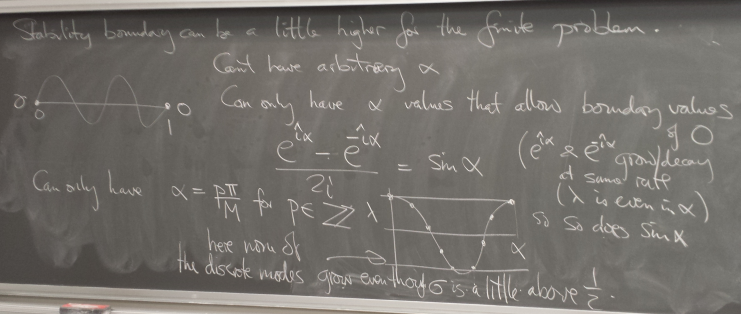 Stability boundary can be a little higher for the finite problem.
Can't have arbitrary α
Can only have α values that allow boundary values of 0
0 0 0 1
(e^{iα} - e^{-iα})/2i = sin α
(e^{iα} & e^{-iα} grow/decay
at same rate
(λ is even in α)
so so does sin α
Can only have α = pπ/M for p ∈ ℤ
λ
α
here non of
the discrete modes grow even though σ is a little above 1/2.